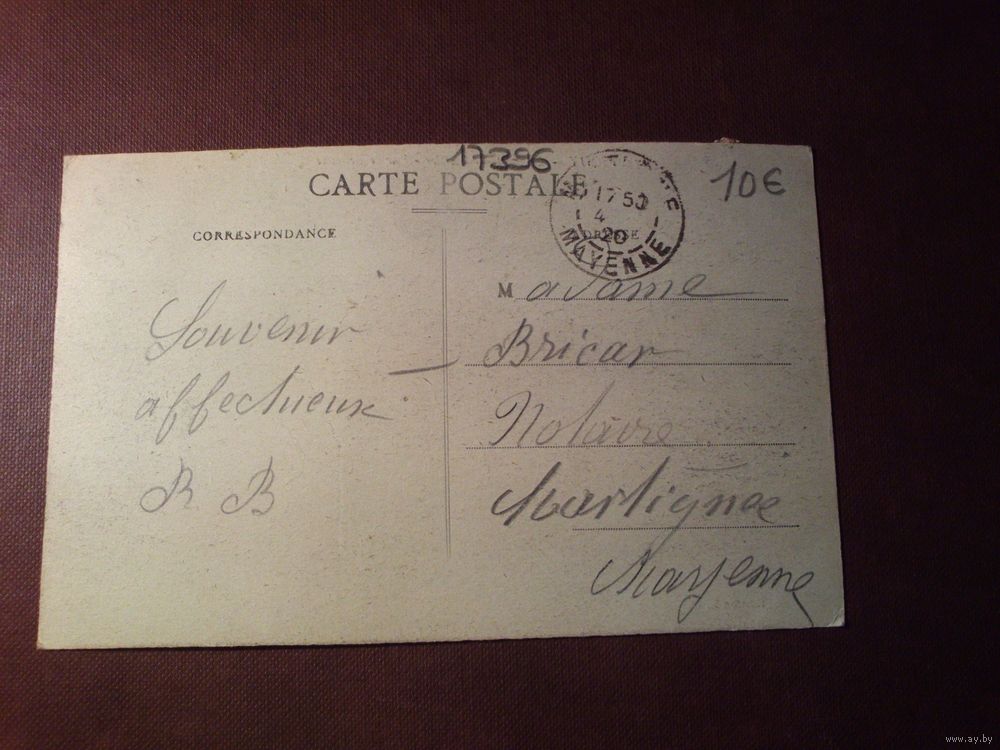 17396
CARTE POSTALE
10€
17 50
4
20
MAYENNE
CORRESPONDANCE
Souvenir
affectueux
R B
Madame
Bricar
Notaire
Martignée
Mayenne
www.ay.by